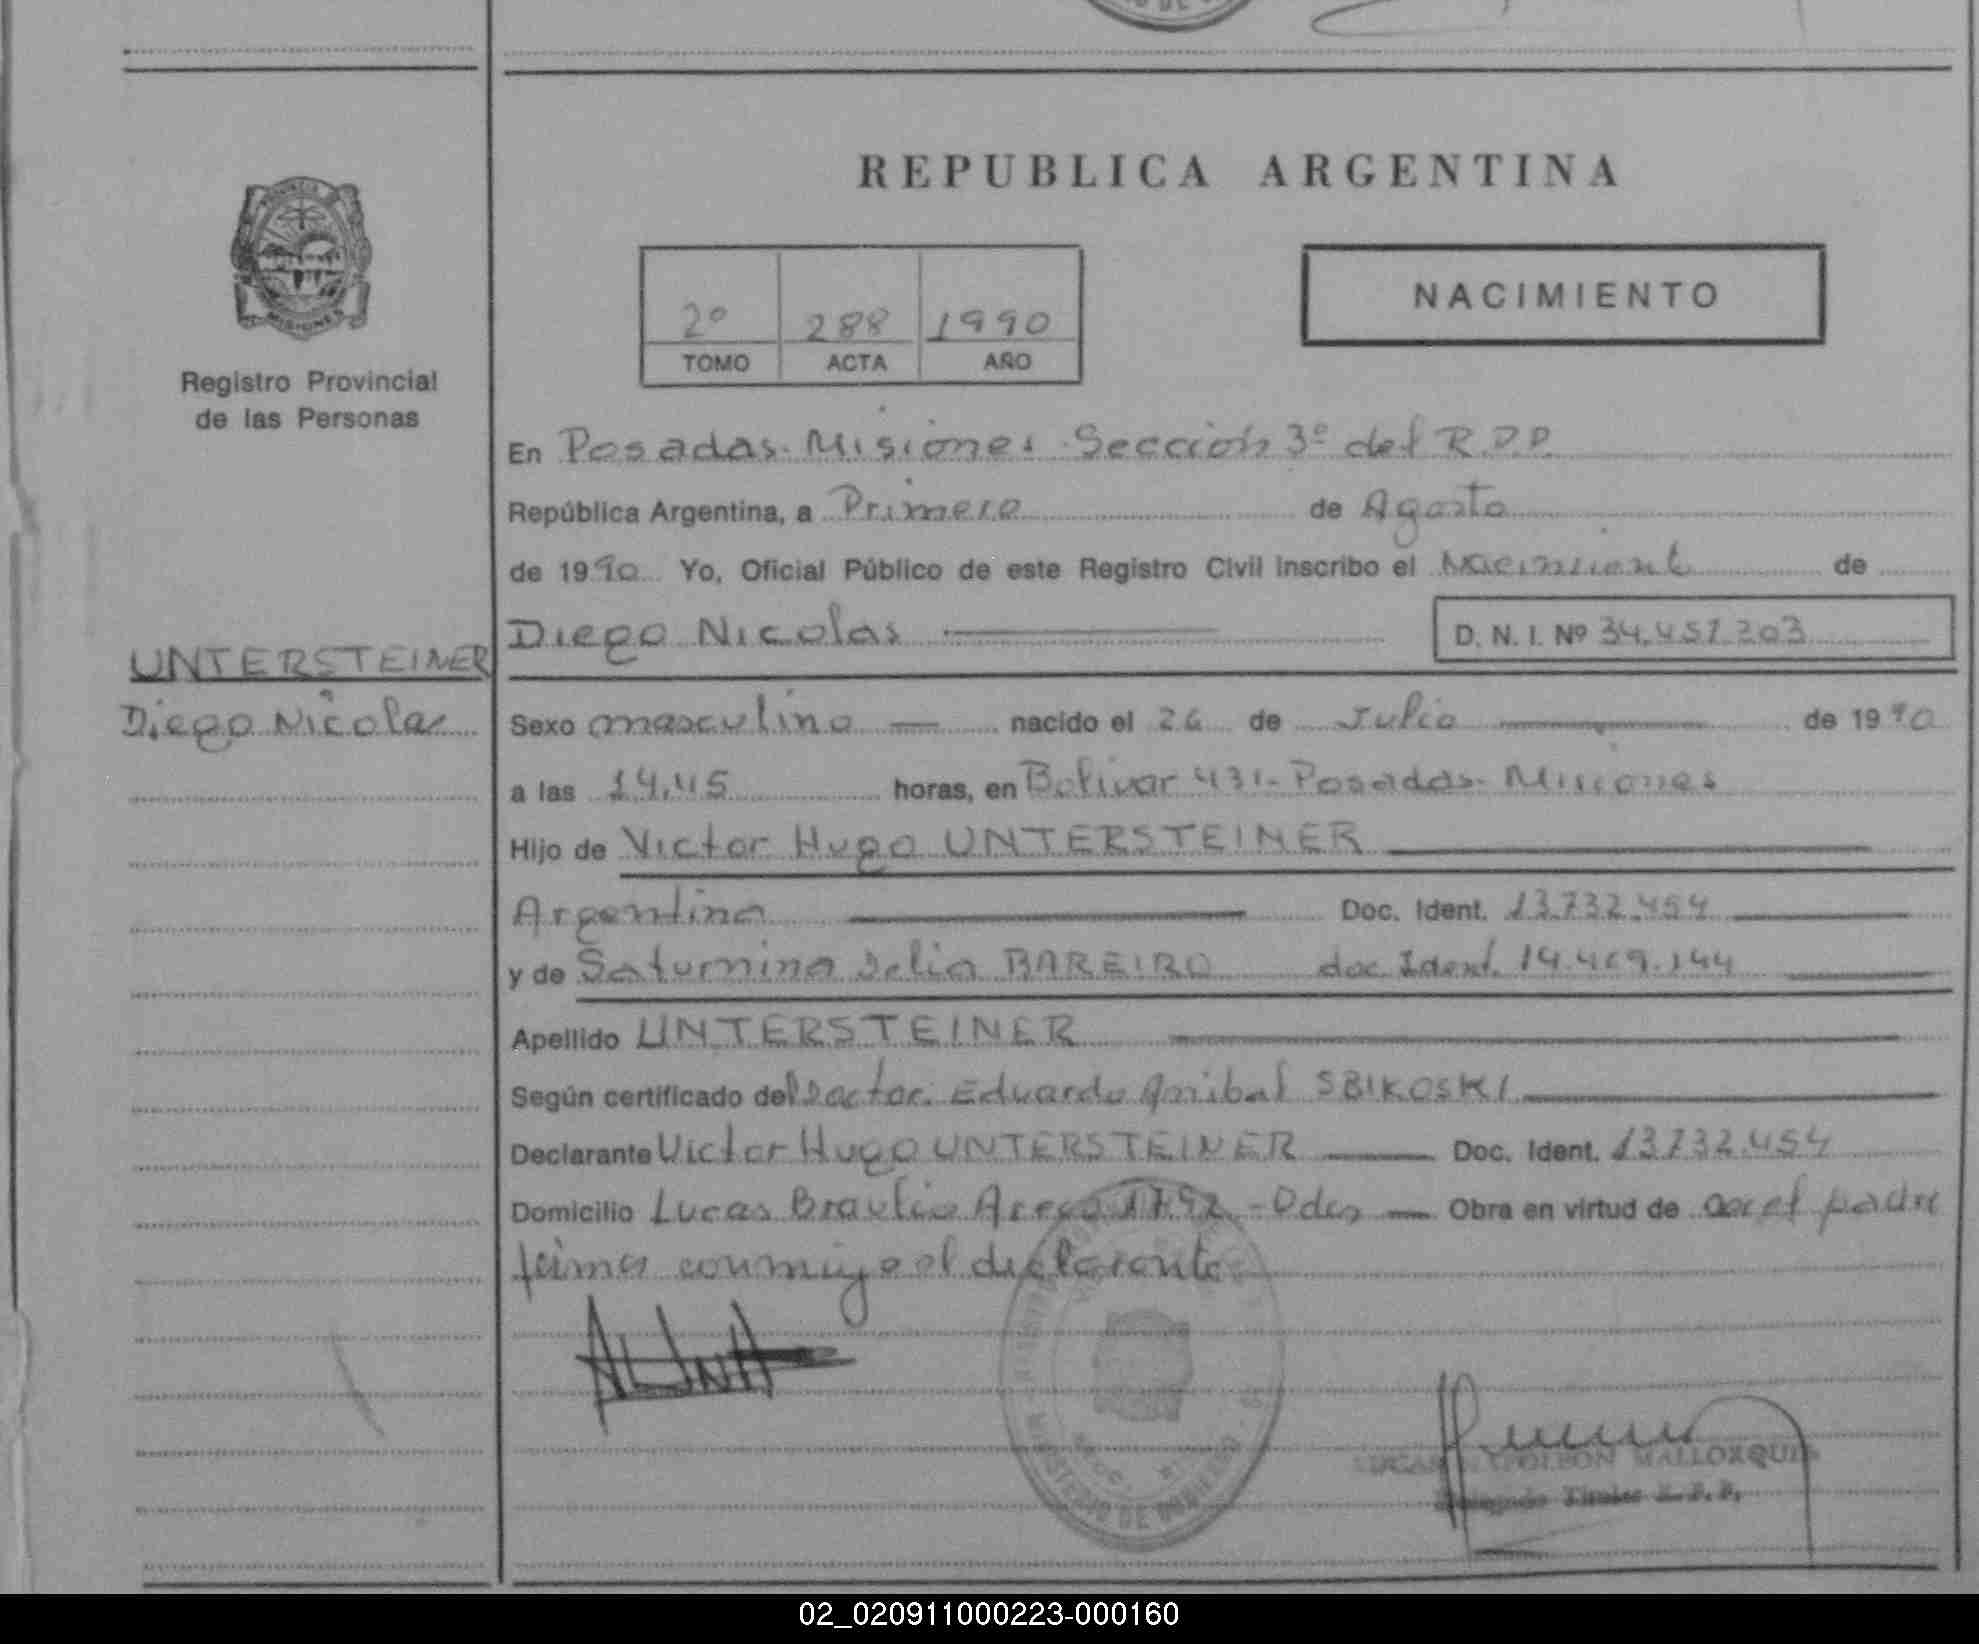 REPUBLICA ARGENTINA
NACIMIENTO
2º 288 1990
TOMO ACTA AÑO
MISIONES
Registro Provincial
de las Personas
En Posadas. Misiones. Sección 3º del R.P.P.
República Argentina, a Primero de Agosto
de 1990 Yo, Oficial Público de este Registro Civil inscribo el Nacimient de
Diego Nicolas D. N. I. Nº 34.451.203
UNTERSTEINER
Diego Nicolas
Sexo masculino nacido el 26 de Julio de 1990
a las 14,45 horas, en Bolivar 431 - Posadas - Misiones
Hijo de Victor Hugo UNTERSTEINER
Argentino Doc. Ident. 13.732.454
y de Saturnina Delia BAREIRO doc Ident. 14.469.144
Apellido UNTERSTEINER
Según certificado del Doctor. Eduardo Anibal SBIKOSKI
Declarante Victor Hugo UNTERSTEINER Doc. Ident. 13.732.454
Domicilio Lucas Braulio Areco 1792 - Pdas Obra en virtud de ser el padre
firma conmigo el declarante
MINISTERIO DE GOBIERNO
NAPOLEON MALLORQUIN
Delegado Titular R. P. P.
02_020911000223-000160